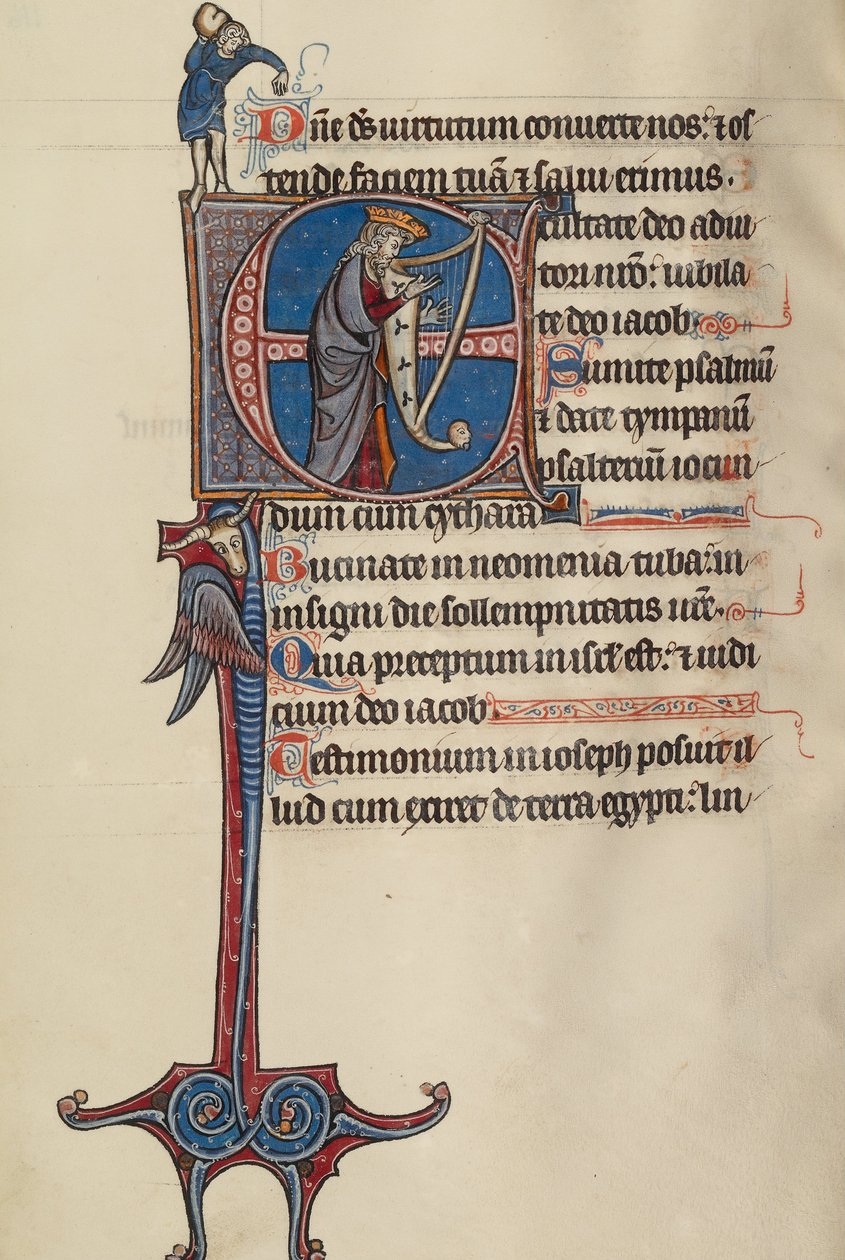 Dñe ds uirtutum conuerte nos: ⁊ os
tende faciem tuã ⁊ salui erimus.
Exultate deo adiu
tori nrõ: iubila
te deo iacob
Sumite psalmũ
⁊ date tympanũ
psalteriũ iocun
dum cum cythara
Bucinate in neomenia tuba: in
insigni die sollempnitatis urẽ.
Quia preceptum in isrl est: ⁊ iudi
cium deo iacob
Testimonium in ioseph posuit il
lud cum exiret de terra egypti: lin